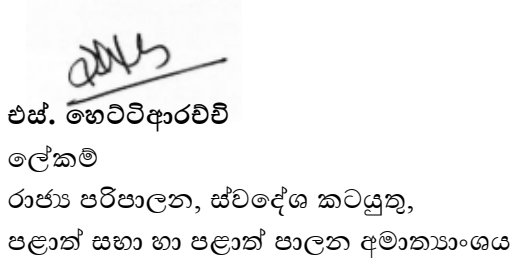 එස්. හෙට්ටිආරච්චි
ලේකම්
රාජ්‍ය පරිපාලන, ස්වදේශ කටයුතු,
පළාත් සභා හා පළාත් පාලන අමාත්‍යාංශය